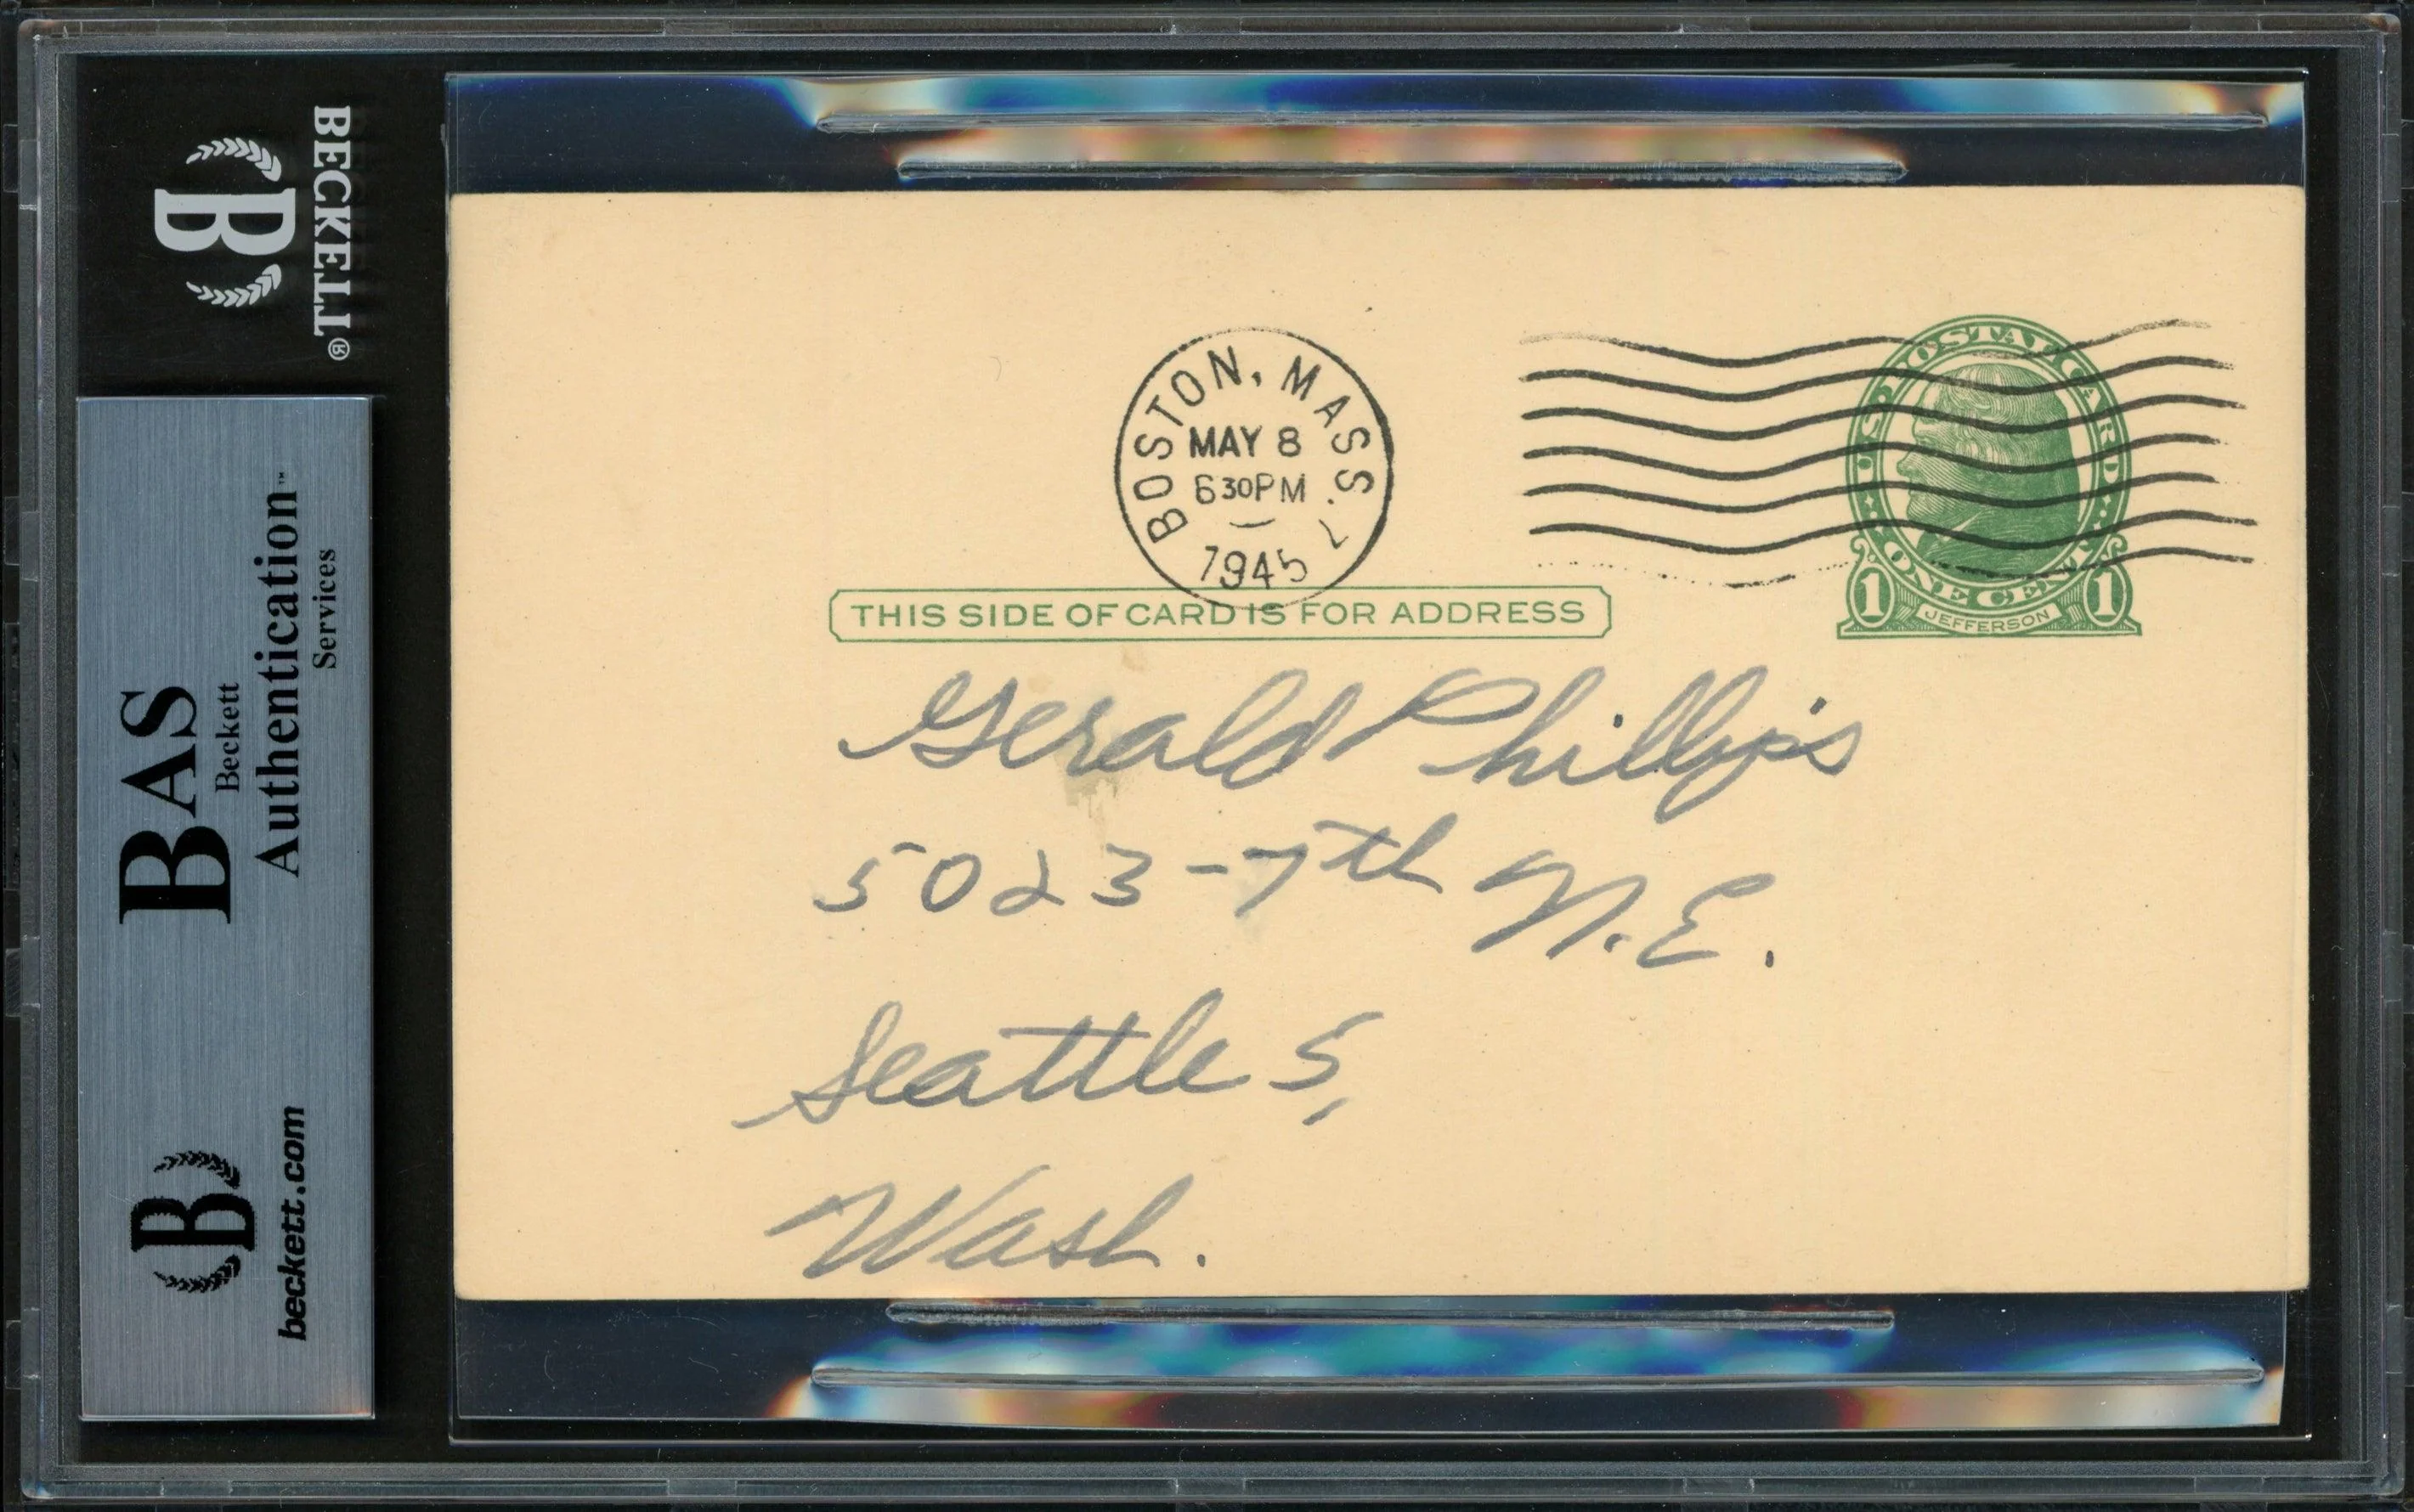 BECKETT®
B
BAS
Beckett
Authentication™
Services
B
beckett.com
BOSTON, MASS.
MAY 8
630PM
1945
U.S. POSTAL CARD
ONE CENT
1 JEFFERSON 1
THIS SIDE OF CARD IS FOR ADDRESS
Gerald Phillips
5023-7th N.E.
Seattle 5,
Wash.